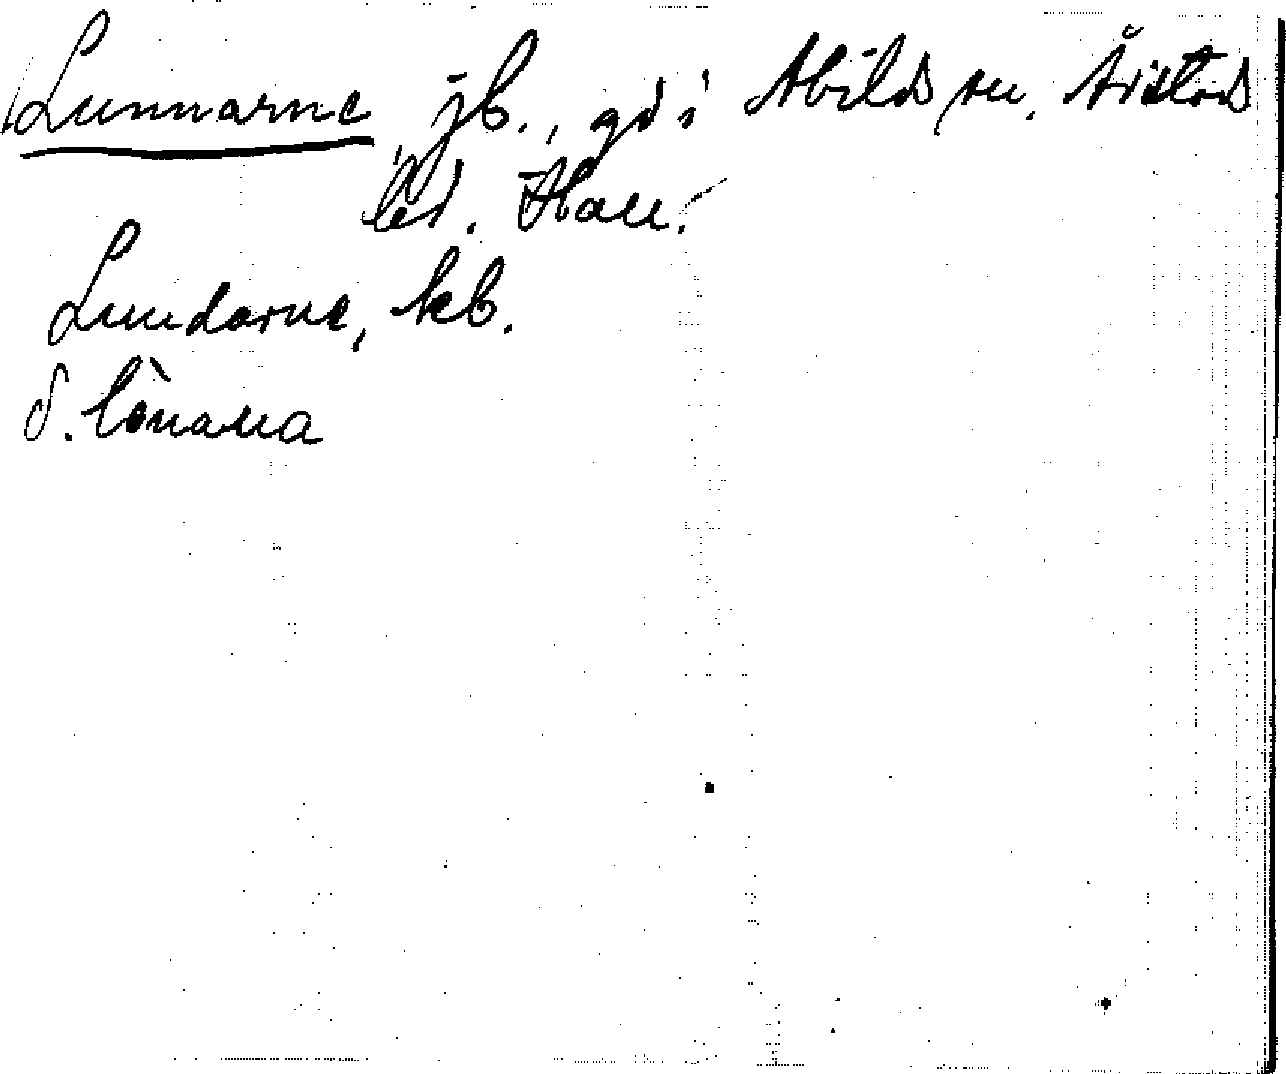 Lunnarne jb., gd i Abilds sn. Årstad
hd. Hall.
Lundarne, kb.
d. lònana